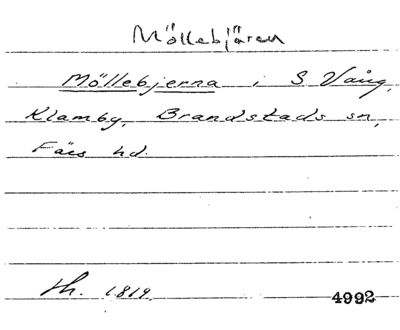 Möllebjären
Möllebjerna i S Vång,
Klamby, Brandstads sn,
Färs hd.
Sth. 1819.
4992